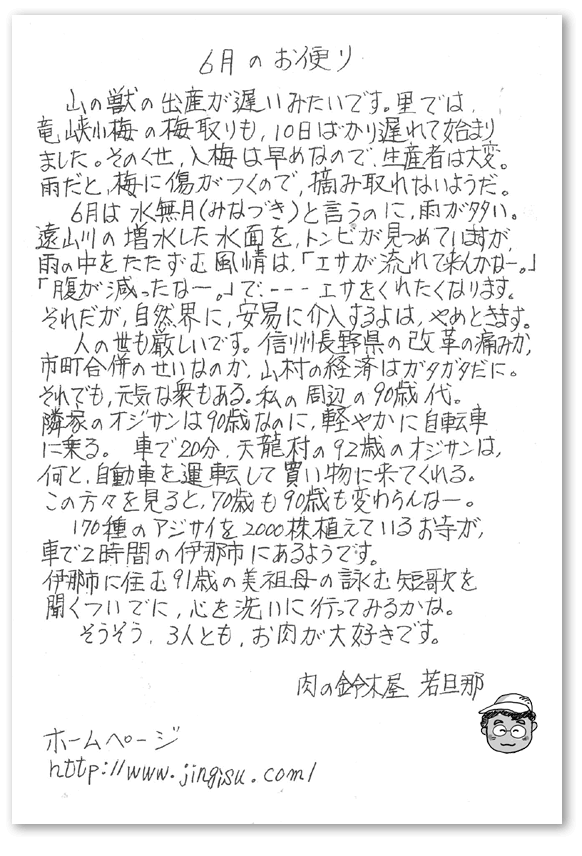 6月のお便り
山の獣の出産が遅いみたいです。里では、
竜峡小梅の梅取りも、10日ばかり遅れて始まり
ました。そのくせ、入梅は早めなので、生産者は大変。
雨だと、梅に傷がつくので、摘み取れないようだ。
6月は水無月(みなづき)と言うのに、雨が多い。
遠山川の増水した水面を、トンビが見つめていますが、
雨の中をたたずむ風情は、「エサが流れて来んかなー。」
「腹が減ったなー。」で、---エサをくれたくなります。
それだが、自然界に、安易に介入するよは、やめときます。
人の世も厳しいです。信州長野県の改革の痛みか、
市町合併のせいなのか、山村の経済はガタガタだに。
それでも、元気な衆もある。私の周辺の90歳代。
隣家のオジサンは90歳なのに、軽やかに自転車
に乗る。車で20分、天龍村の92歳のオジサンは、
何と、自動車を運転して買い物に来てくれる。
この方々を見ると、70歳も90歳も変わらんなー。
170種のアジサイを2000株植えているお寺が、
車で2時間の伊那市にあるようです。
伊那市に住む91歳の美祖母の詠む短歌を
聞くついでに、心を洗いに行ってみるかな。
そうそう、3人とも、お肉が大好きです。
肉の鈴木屋 若旦那
ホームページ
http://www.jingisu.com/